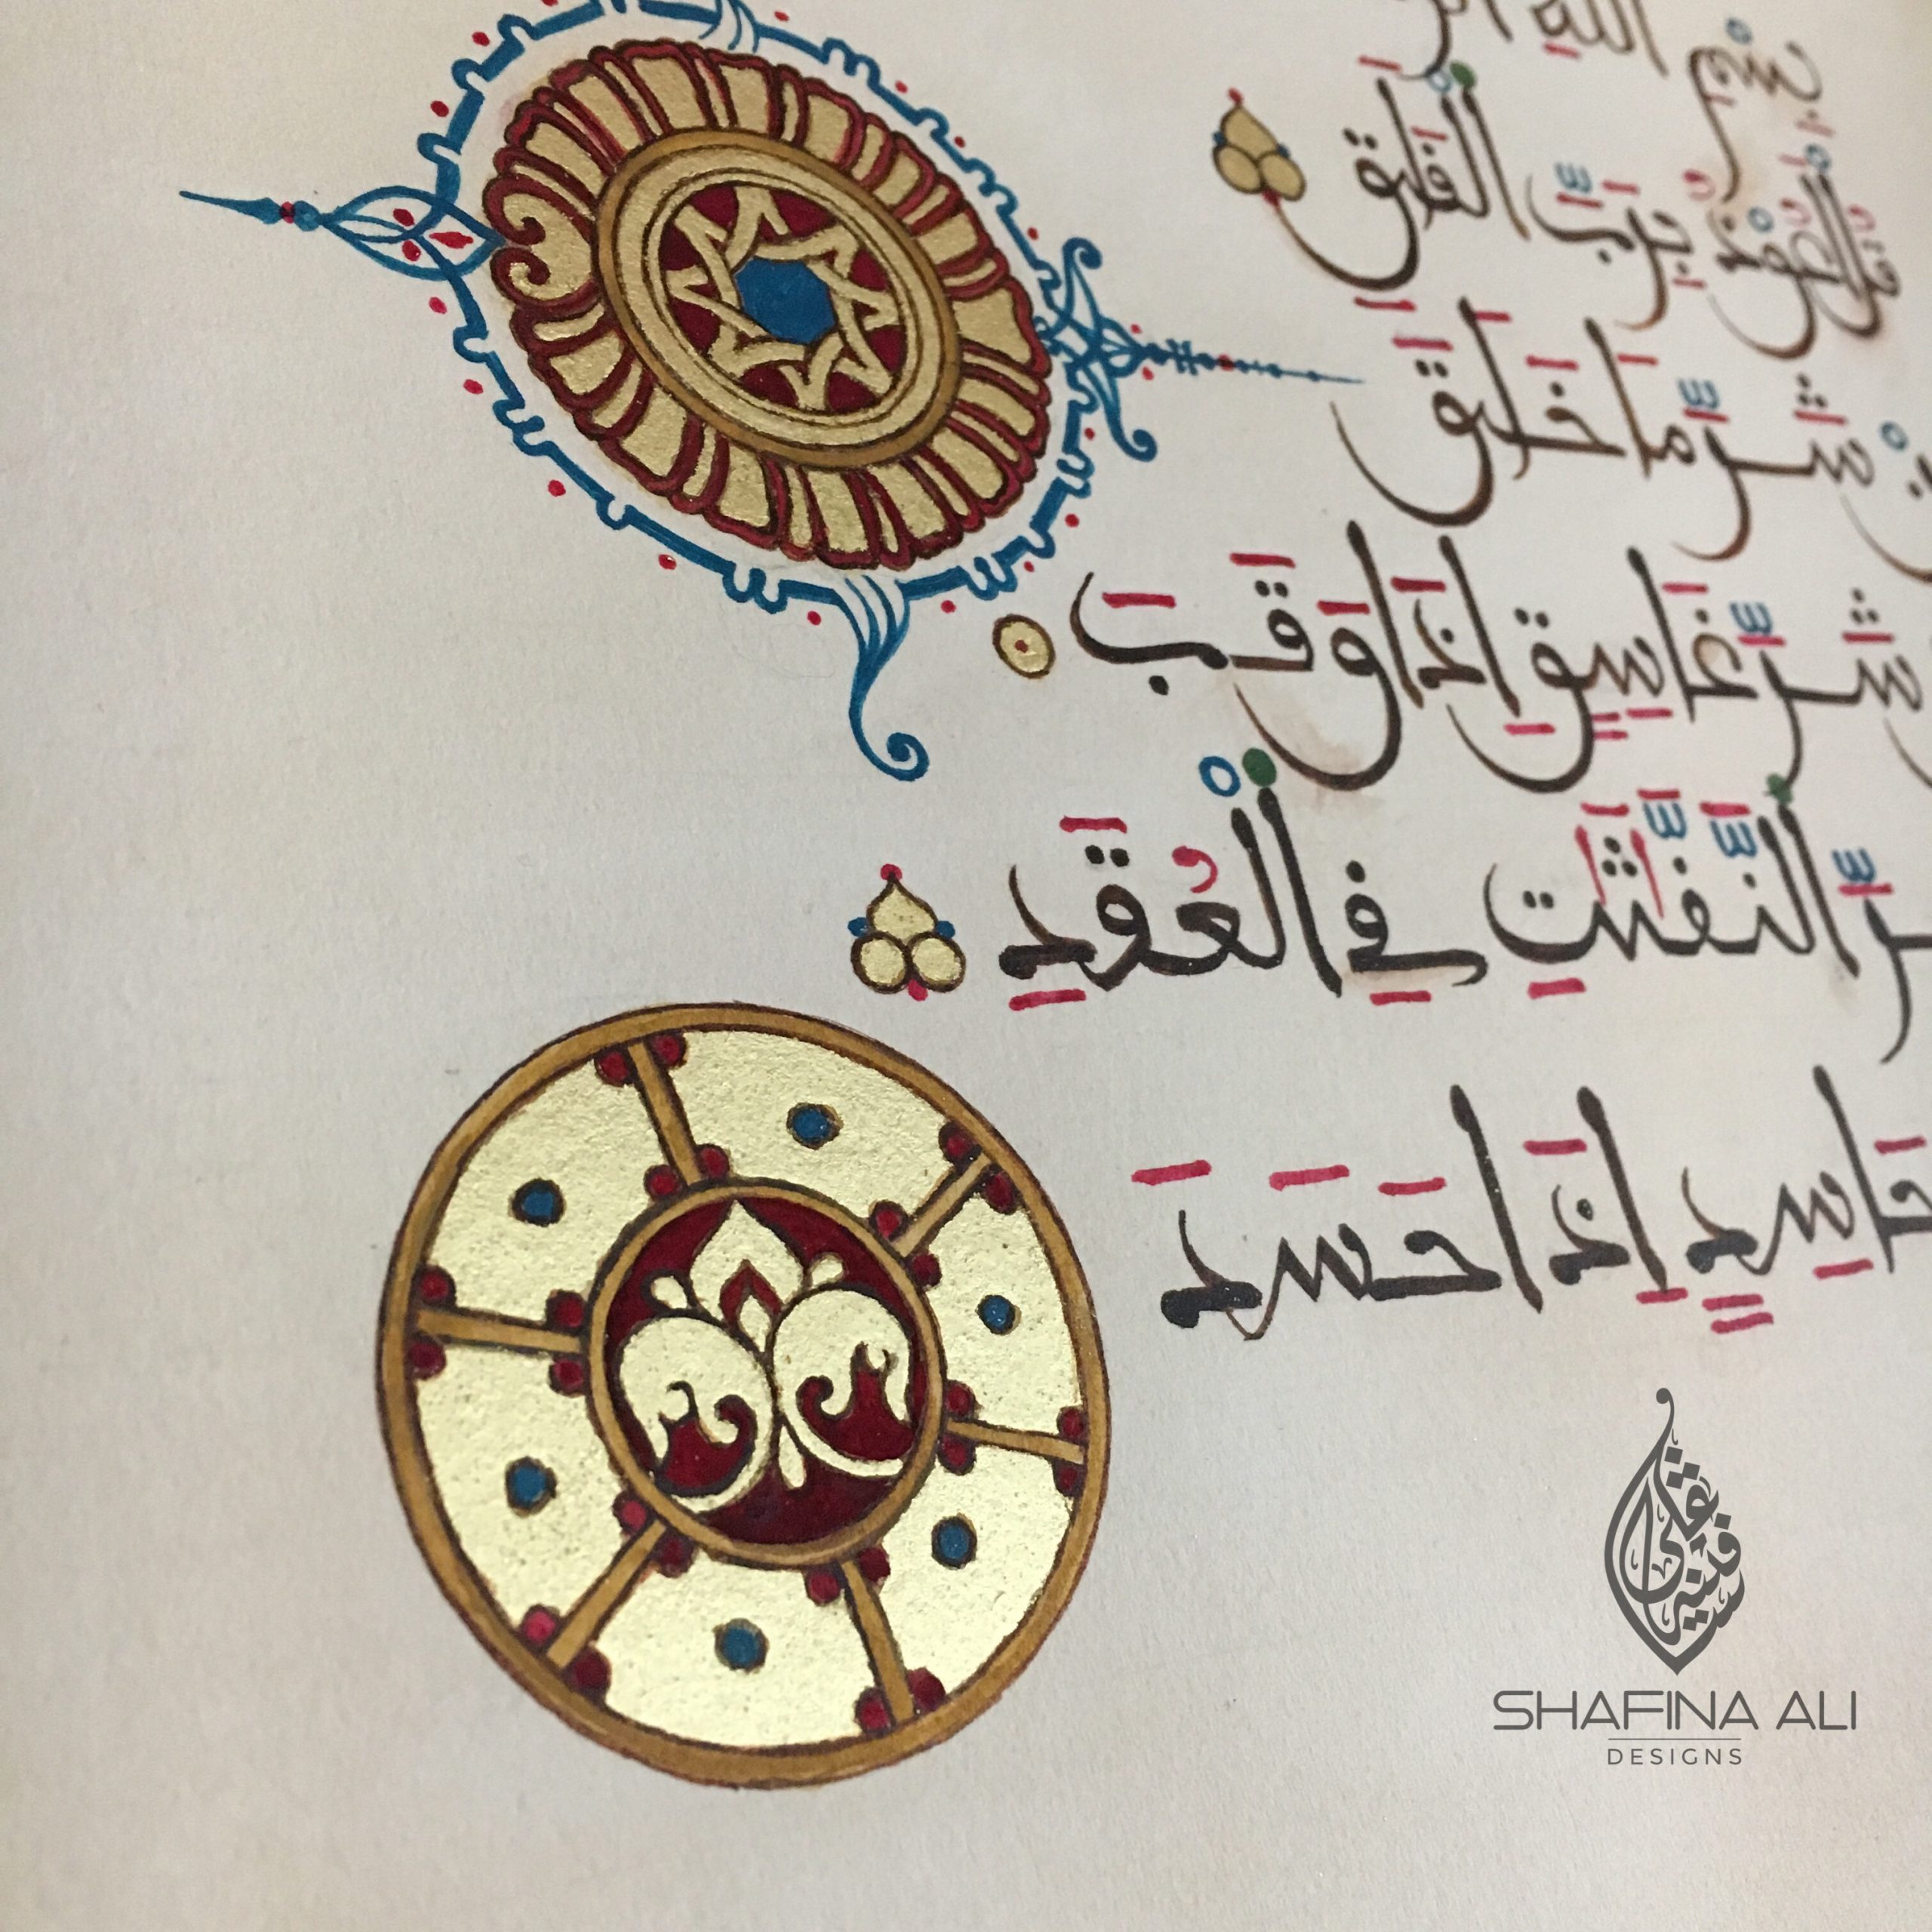 اللهِ
قُلْ أَعُوذُ بِرَبِّ الْفَلَقِ
شَرِّ مَا خَلَقَ
شَرِّ غَاسِقٍ اِذَا وَقَبَ
النَّفَّٰثَٰتِ فِي الْعُقَدِ
حَاسِدٍ اِذَا حَسَدَ
SHAFINA ALI
DESIGNS